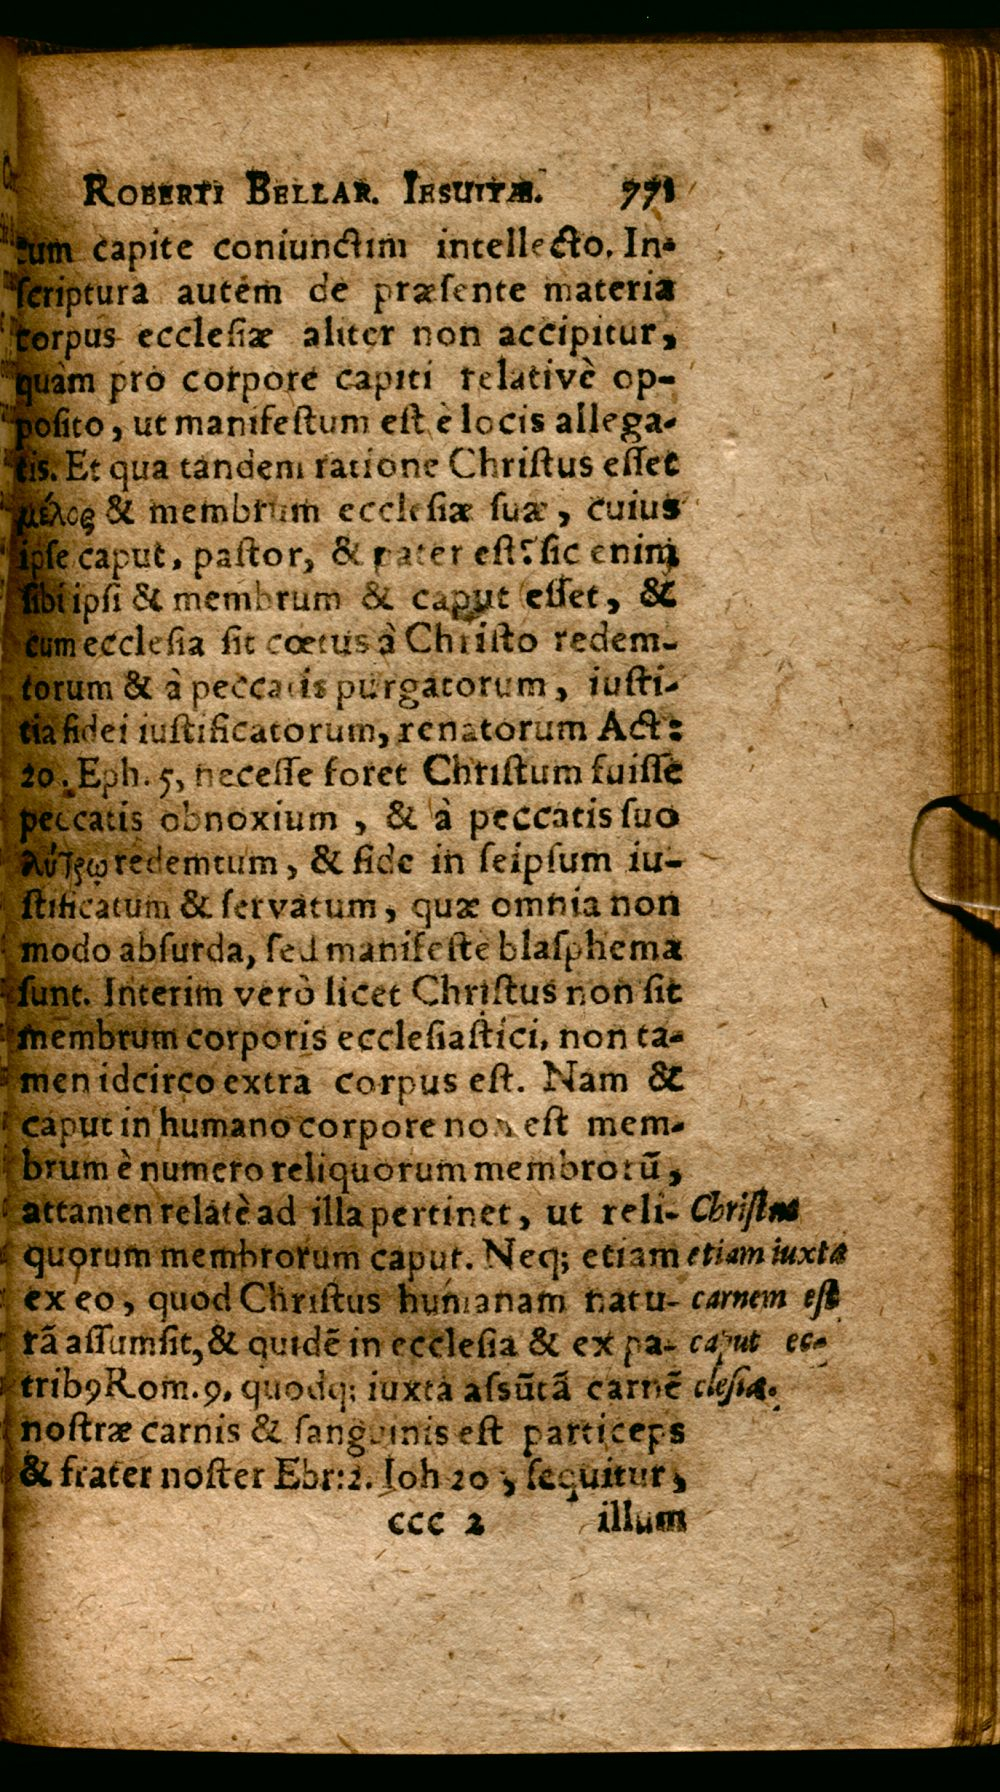 ROBERTI BELLAR. IESUITÆ. 771
cum capite coniunctim intellecto. In-
scriptura autem de præsente materia
corpus ecclesiæ aliter non accipitur,
quàm pro corpore capiti relativè op-
posito, ut manifestum est è locis allega-
tis. Et qua tandem ratione Christus esset
μέλος & membrum ecclesiæ suæ, cuius
ipse caput, pastor, & pater est? sic enim
sibi ipsi & membrum & caput esset, &
cum ecclesia sit cœtus à Christo redem-
torum & à peccatis purgatorum, iusti-
tia fidei iustificatorum, renatorum Act:
20. Eph. 5, necesse foret Christum fuisse
peccatis obnoxium, & à peccatis suo
λύτρῳ redemtum, & fide in seipsum iu-
stificatum & servatum, quæ omnia non
modo absurda, sed manifeste blasphema
sunt. Interim verò licet Christus non sit
membrum corporis ecclesiastici, non ta-
men idcirco extra corpus est. Nam &
caput in humano corpore non est mem-
brum è numero reliquorum membrorū,
attamen relatè ad illa pertinet, ut reli-
quorum membrorum caput. Neq; etiam
ex eo, quod Christus humanam natu-
rā assumsit, & quidē in ecclesia & ex pa-
tribꝰ Rom. 9, quodq; iuxta assūtā carnē
nostræ carnis & sanguinis est particeps
& frater noster Ebr: 2. Ioh 20, sequitur,
Christus
etiam iuxta
carnem est
caput ec-
clesiæ.
ccc 2 illum